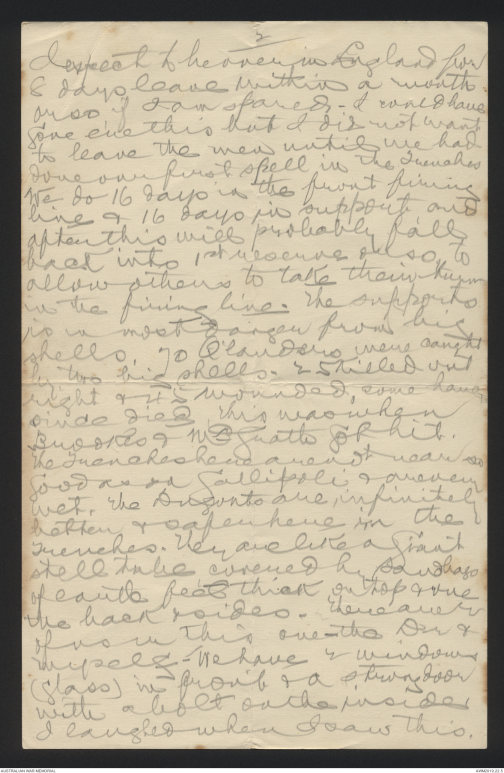 2
I expect to be over in England for
8 days leave within a month
or so if I am spared - I could have
gone ere this but I did not want
to leave the men until we had
done our first spell in the Trenches
We do 16 days in the front firing
line & 16 days in support and
after this will probably fall
back into 1st reserve or so to
allow others to take their turn
in the firing line. The supports
is in most danger from big
shells. 70 Q'landers were caught
by two big shells. killed out
right & 45 wounded, some have
since died. This was when
Brookes & McGrath got hit.
The Trenches here are not near so
good as on Gallipoli & are very
wet. The Dugouts are infinitely
better & safer here in the
Trenches. They are like a giant
steel tube covered by sandbags
of earth feet thick on top & over
the back & sides. There are 2
of us in this one - the Dr &
myself - We have 2 windows
(glass) in front & a strong door
with a bolt on the inside
I laughed when I saw this.
AUSTRALIAN WAR MEMORIAL